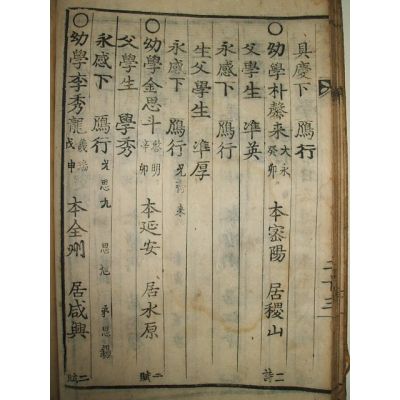 具慶下 鴈行
○幼學朴馨来 大永 癸卯 本密陽 居稷山 二詩
父學生 準英
永感下 鴈行
生父學生 準厚
永感下 鴈行 兄 来
○幼學金思斗 啓明 辛卯 本延安 居水原 二賦
父學生 學秀
永感下 鴈行 兄思九 思旭 弟思
○幼學李秀龍 戊申 本全州 居咸興 二賦